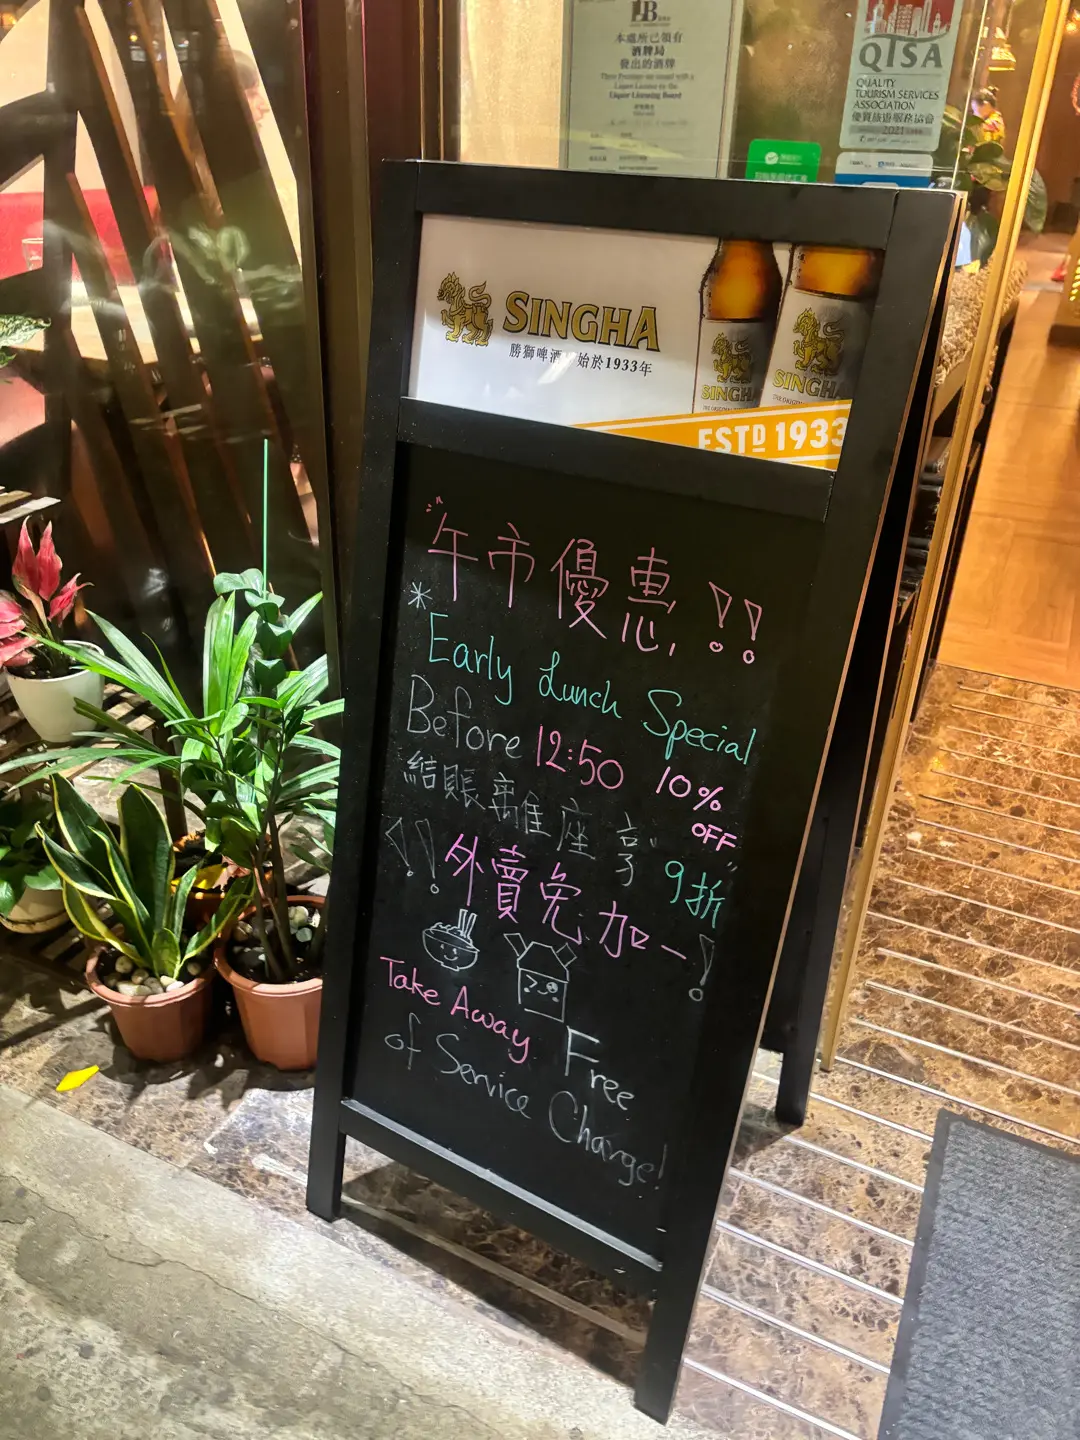 LB
本處所已領有
酒牌局
發出的酒牌
These Premises are issued with a
Liquor Licence by the
Liquor Licensing Board
QTSA
QUALITY
TOURISM SERVICES
ASSOCIATION
優質旅遊服務協會
2021
SINGHA
勝獅啤酒 始於1933年
SINGHA
SINGHA
ESTD 1933
午市優惠!!
*Early Lunch Special
Before 12:50 10% OFF
結賬離座享"9折"
!!外賣免加一!
Take Away Free
of Service Charge!